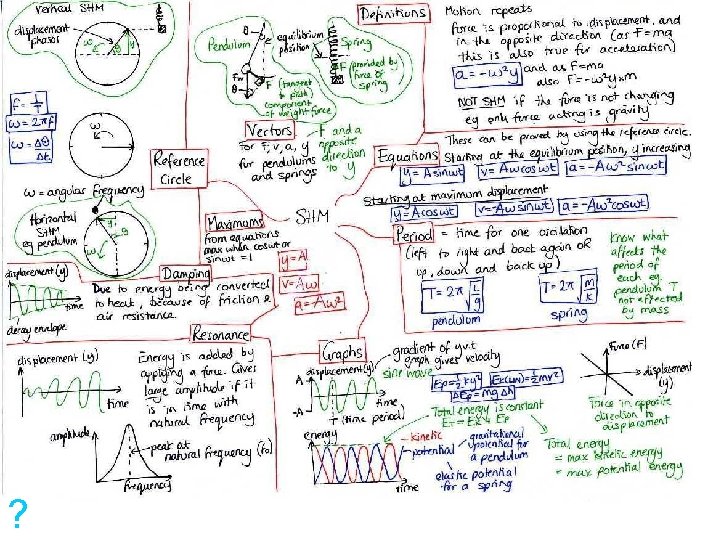 Vertical SHM
displacement
phasor
ω
θ
y
f = 1/T
ω = 2πf
ω = Δθ/Δt
ω
ω = angular frequency
Reference
Circle
Horizontal
SHM
eg pendulum
y
θ
ω
Pendulum
θ
equilibrium
position
Spring
F provided by
force of
spring
F (tangent
to path)
component
of weight force
Vectors
for F, v, a, y
for pendulums
and springs
F and a
opposite
direction
to y
Definitions
Motion repeats
force is proportional to displacement, and
in the opposite direction (as F=ma
this is also true for acceleration)
a = -ω²y
and as F=ma
also F=-ω²y×m
NOT SHM if the force is not changing
eg only force acting is gravity
Equations
These can be proved by using the reference circle.
Starting at the equilibrium position, y increasing
y = A sin ωt
v = Aω cos ωt
a = -Aω² sin ωt
Starting at maximum displacement
y = A cos ωt
v = -Aω sin ωt
a = -Aω² cos ωt
SHM
Maximums
from equations
max when cos ωt or
sin ωt = 1
y = A
v = Aω
a = Aω²
Period = time for one oscillation
(left to right and back again OR
up, down and back up)
T = 2π √L/g
pendulum
T = 2π √m/k
spring
Know what
affects the
period of
each eg.
pendulum T
not affected
by mass
Damping
Due to energy being converted
to heat, because of friction &
air resistance.
displacement (y)
time
decay envelope
Resonance
Energy is added by
applying a force. Gives
large amplitude if it
is in time with
natural frequency
displacement (y)
time
amplitude
peak at
natural frequency (f₀)
frequency
Graphs
gradient of y v. t
graph gives velocity
displacement (y)
sine wave
A
-A
time
T (time period)
Ep = ½ky²
Ek(LIN) = ½mv²
ΔEp = mgΔh
Total energy is constant
ET = Ek + Ep
energy
kinetic
potential
gravitational
potential for
a pendulum
elastic potential
for a spring
time
Force (F)
displacement
(y)
Force in opposite
direction to
displacement
Total energy
= max kinetic energy
= max potential energy
?